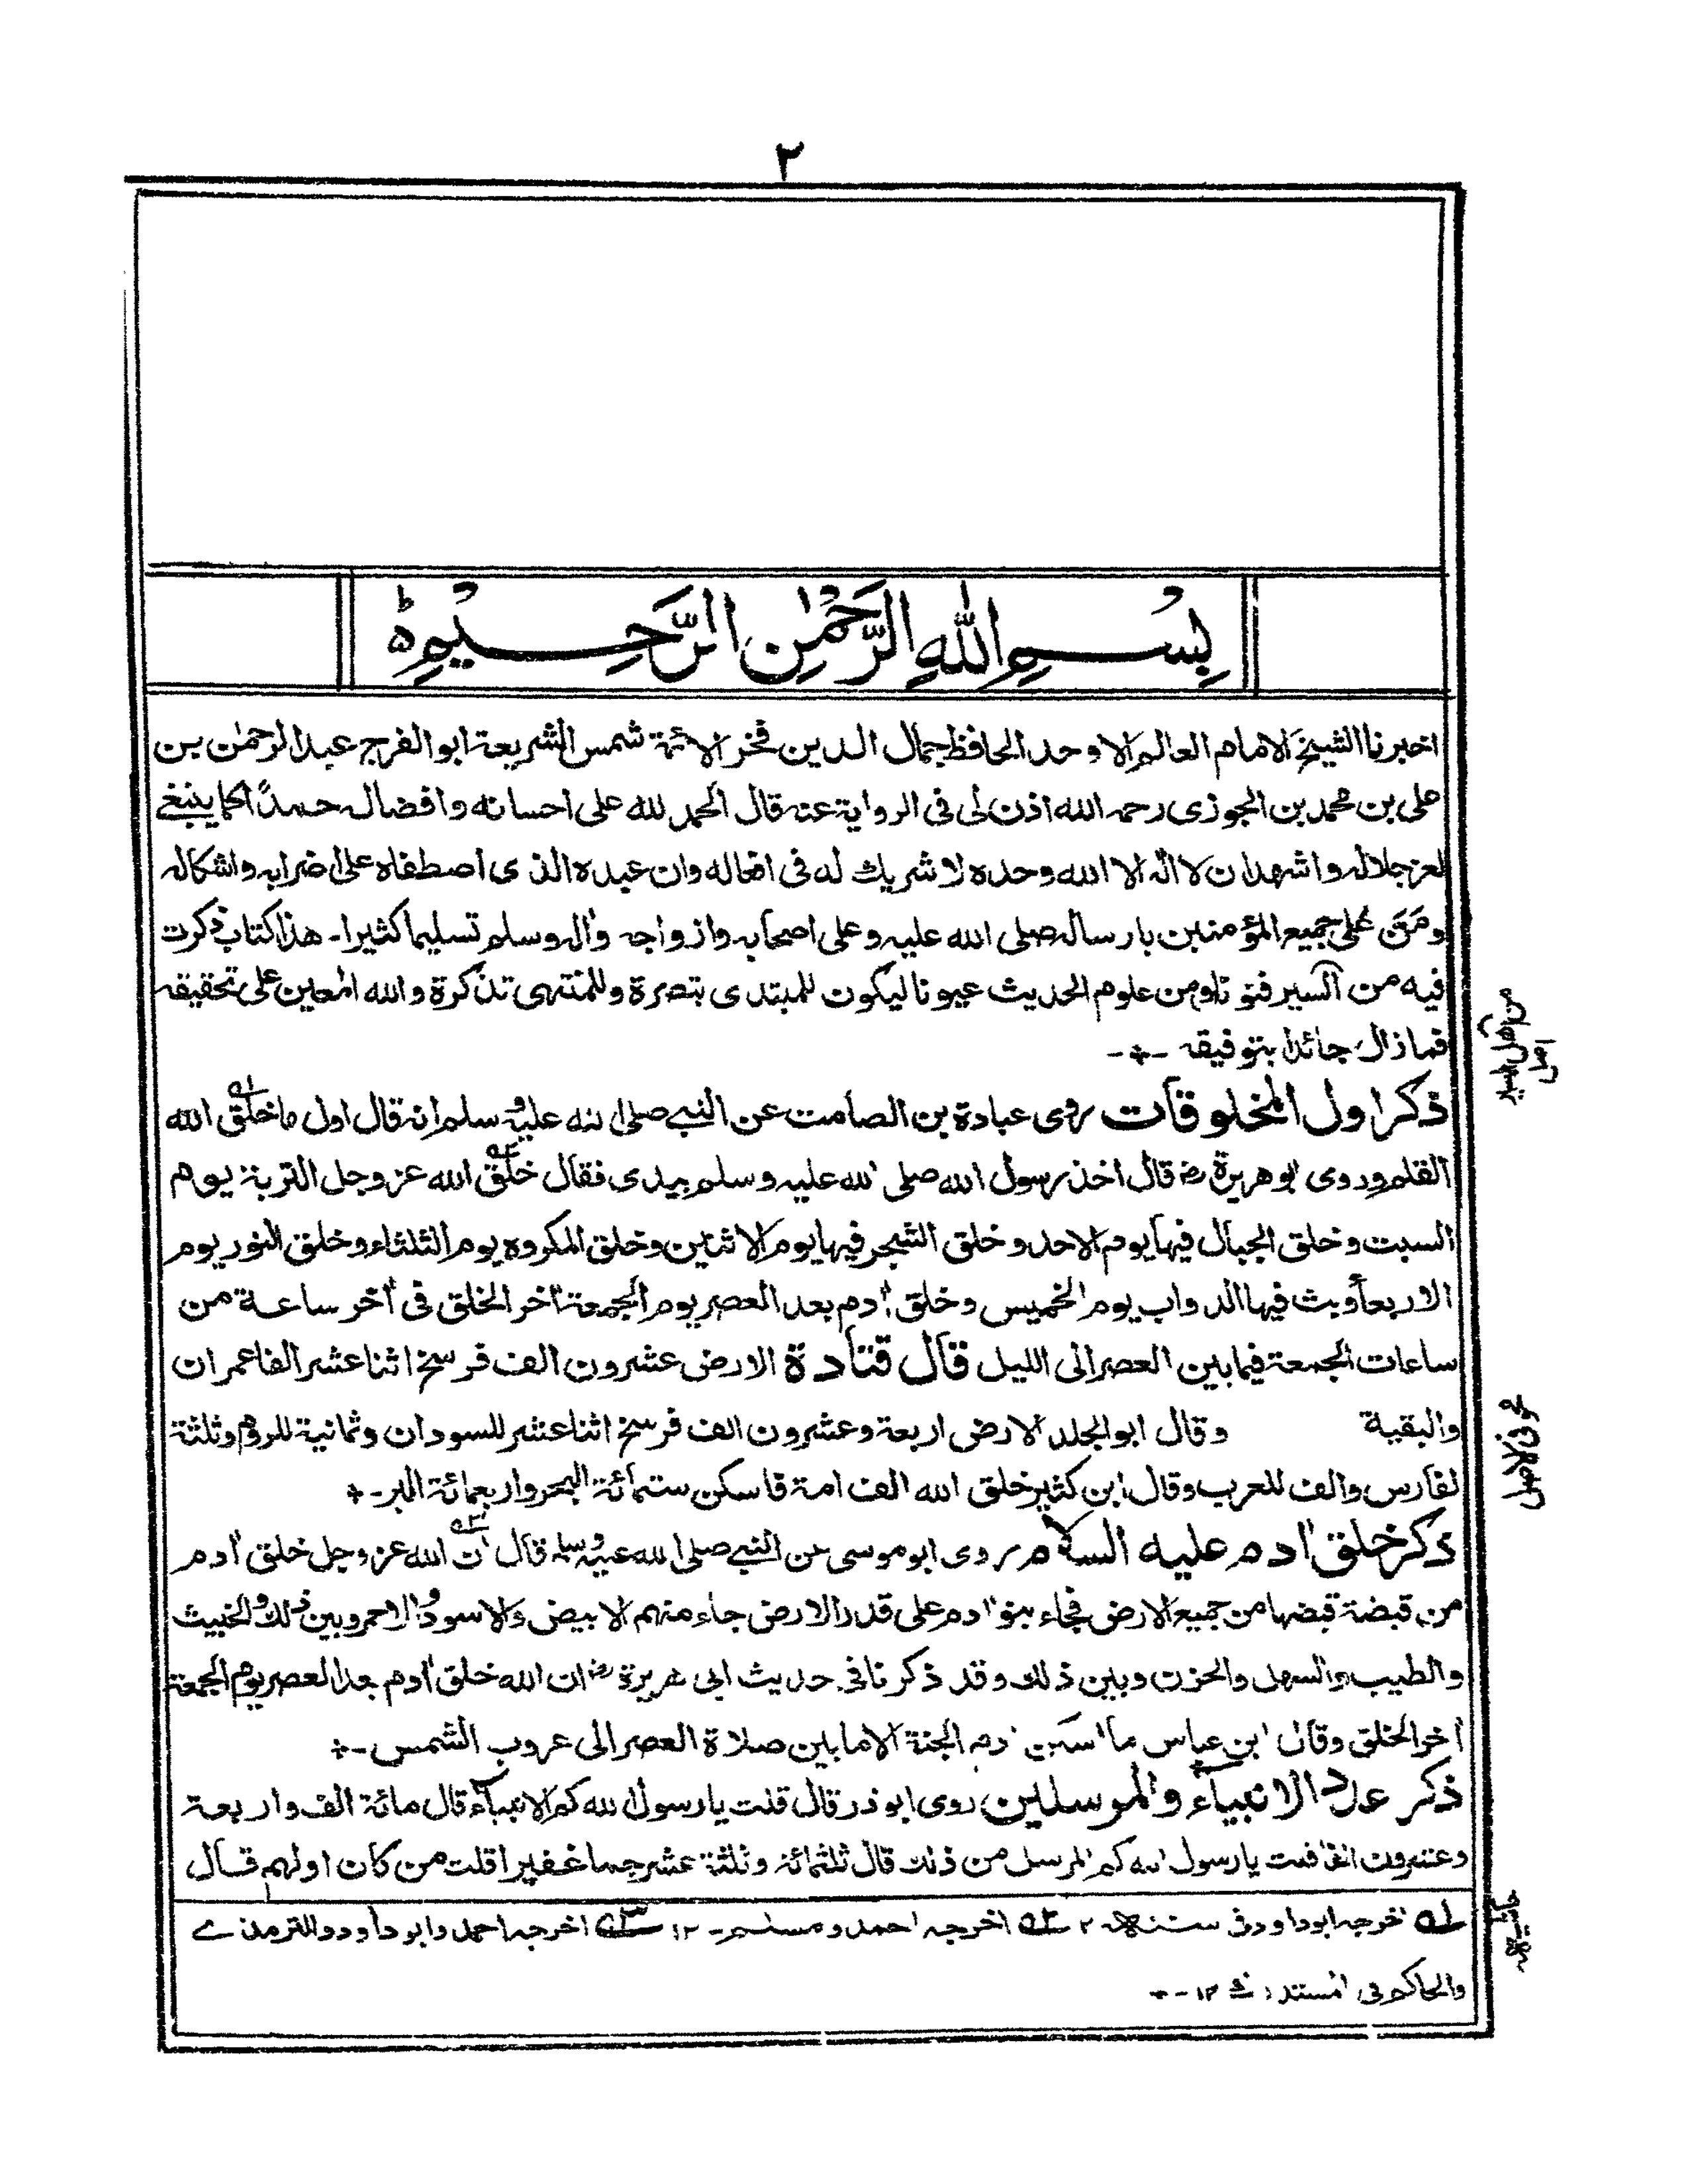 ٢
بِسْمِ اللهِ الرَّحْمٰنِ الرَّحِيْمِ ۃ
اخبرنا الشيخ الامام العالم الاوحد الحافظ جمال الدين فخر الائمة شمس الشريعة ابو الفرج عبد الرحمٰن بن
على بن محمد بن الجوزى رحمه الله اذن لى فى الرواية عنه قال الحمد لله على احسانه وافضاله حمدًا كما ينبغى
لعز جلاله واشهد ان لا اله الا الله وحده لا شريك له فى افعاله وان عبده الذى اصطفاه على اضرابه واشكاله
ومَنّ على جميع المؤمنين بارساله صلى الله عليه وعلى اصحابه وازواجه واٰله وسلم تسليما كثيرا - هذا كتاب ذكرت
فيه من السير فنونا ومن علوم الحديث عيونا ليكون للمبتدى تبصرة وللمنتهى تذكرة والله المعين على تحقيقه
فما زال جائدا بتوفيقه -
ذكر اول المخلوقات روى عبادة بن الصامت عن النبى صلى الله عليه وسلم انه قال اول ما خلق الله
القلم وروى ابو هريرة رض قال اخذ رسول الله صلى الله عليه وسلم بيدى فقال خلق الله عز وجل التربة يوم
السبت وخلق الجبال فيها يوم الاحد وخلق الشجر فيها يوم الاثنين وخلق المكروه يوم الثلثاء وخلق النور يوم
الاربعاء وبث فيها الدواب يوم الخميس وخلق اٰدم بعد العصر يوم الجمعة اٰخر الخلق فى اٰخر ساعة من
ساعات الجمعة فيما بين العصر الى الليل قال قتادة الارض عشرون الف فرسخ اثنا عشر الفا عمران
والبقية وقال ابو الجلد الارض اربعة وعشرون الف فرسخ اثنا عشر للسودان وثمانية للروم وثلثة
لفارس والف للعرب وقال ابن كثير خلق الله الف امة فاسكن ستمائة البحر واربعمائة البر -
ذكر خلق اٰدم عليه السلام روى ابو موسى عن النبى صلى الله عليه وسلم قال ان الله عز وجل خلق اٰدم
من قبضة قبضها من جميع الارض فجاء بنو اٰدم على قدر الارض جاء منهم الابيض والاسود والاحمر وبين ذلك والخبيث
والطيب والسهل والحزن وبين ذلك وقد ذكرنا فى حديث ابى هريرة رض ان الله خلق اٰدم بعد العصر يوم الجمعة
اٰخر الخلق وقال ابن عباس ما اسكن اٰدم الجنة الا ما بين صلاة العصر الى غروب الشمس -
ذكر عدد الانبياء والمرسلين روى ابو ذر قال قلت يا رسول الله كم الانبياء قال مائة الف واربعة
وعشرون الفا قلت يا رسول الله كم المرسل من ذلك قال ثلثمائة وثلثة عشر جما غفيرا قلت من كان اولهم قال
له١ اخرجه ابو داود فى سننه ١٢ له٢ اخرجه احمد ومسلم - ١٢ له٣ اخرجه احمد وابو داود والترمذى
والحاكم فى المستدرك ١٢ -
من اهل السير
اصل
محو فى الاصل